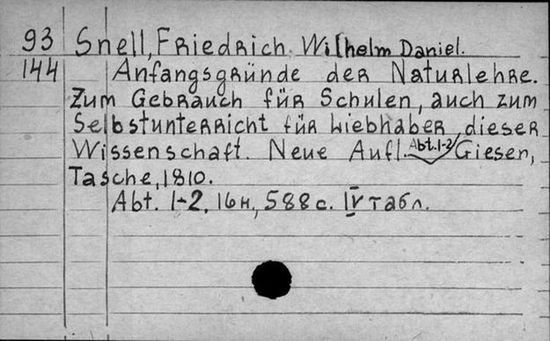 93 Snell, Friedrich Wilhelm Daniel.
144 Anfangsgründe der Naturlehre.
Zum Gebrauch für Schulen, auch zum
Selbstunterricht für Liebhaber dieser
Wissenschaft. Neue Aufl. Abt. 1-2 Giesen,
Tasche, 1810.
Abt. 1-2, 16н, 588 с. IV табл.